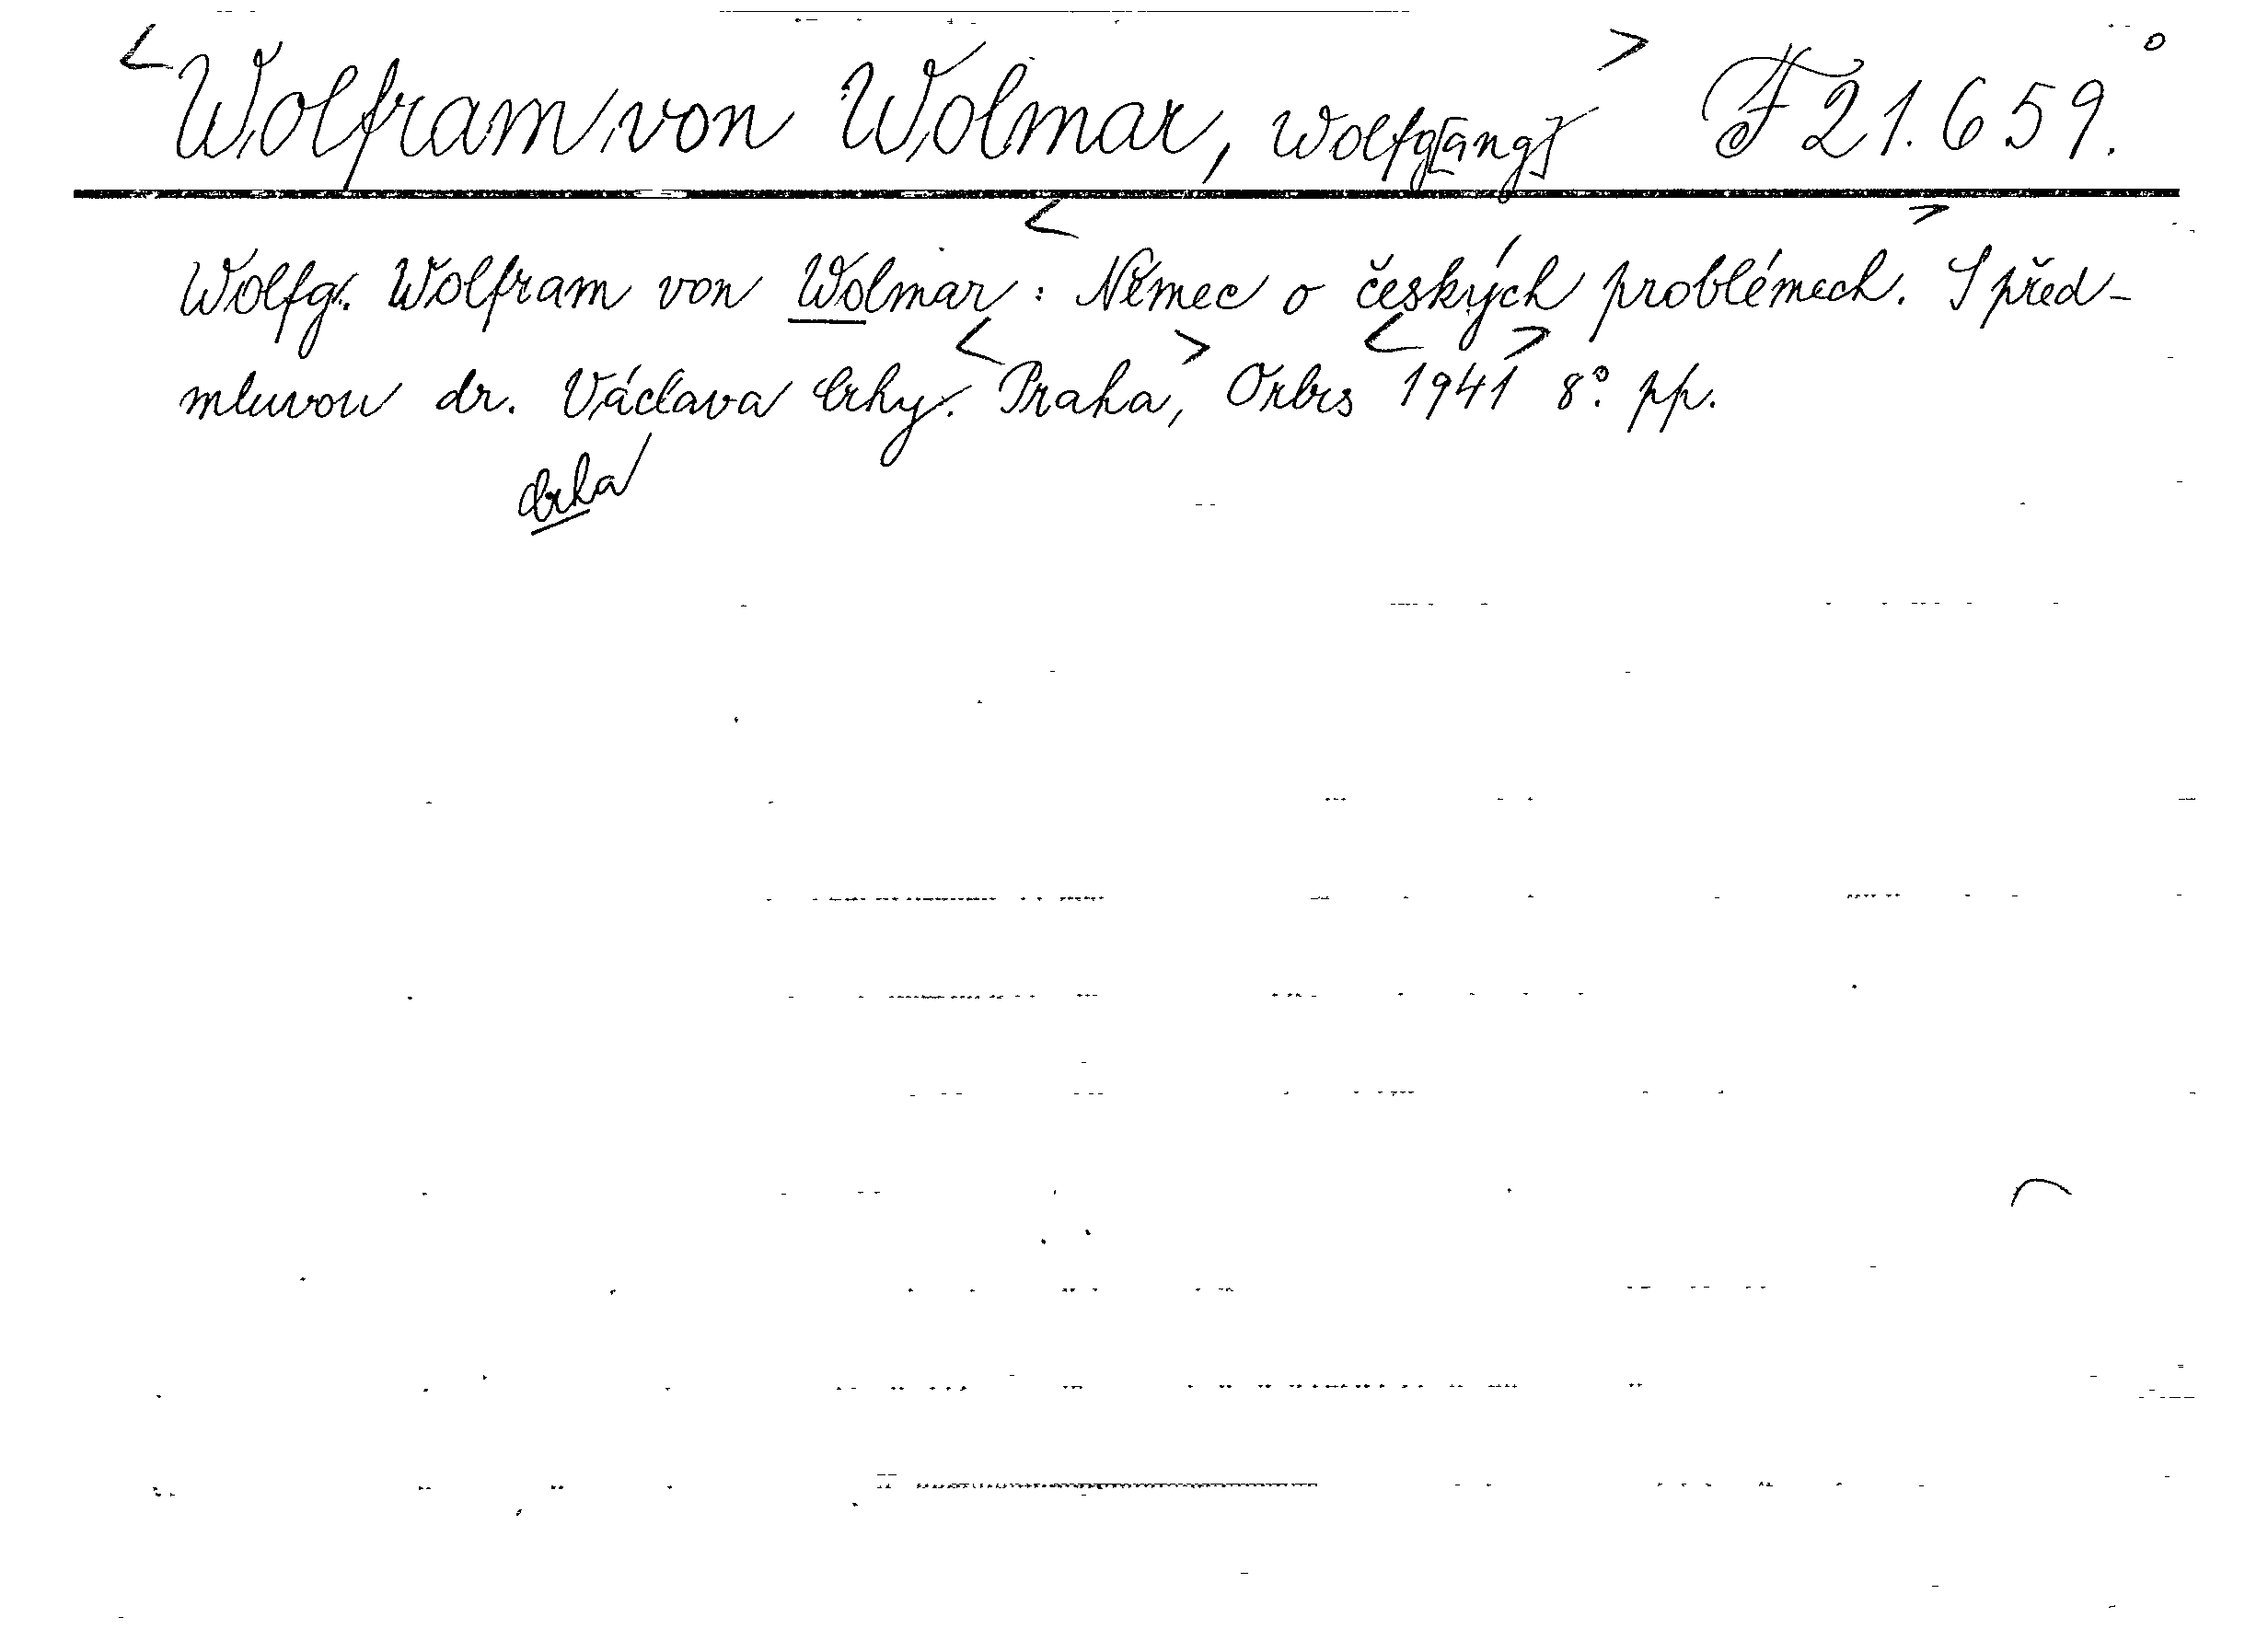 <Wolfram von Wolmar, Wolfg[ang]> F 21.659.
Wolfg. Wolfram von Wolmar: <Němec o českých problémech.> S před-
mluvou dr. Václava Crhy. <Praha>, Orbis <1941> 8°. pp.
Crha